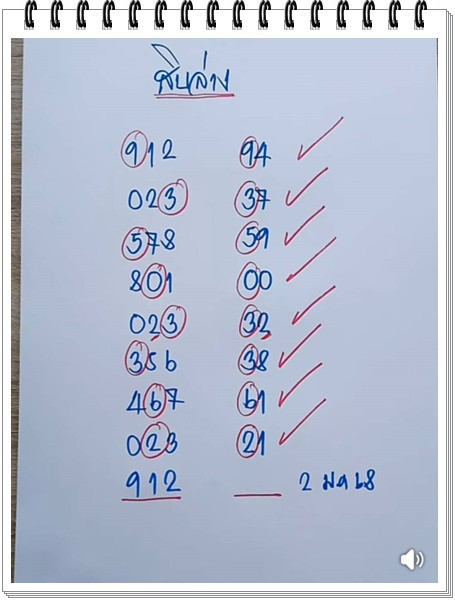 สิบล่าง
912 94
023 37
578 59
801 00
023 32
356 38
467 61
023 21
912 __ 2 มค 68